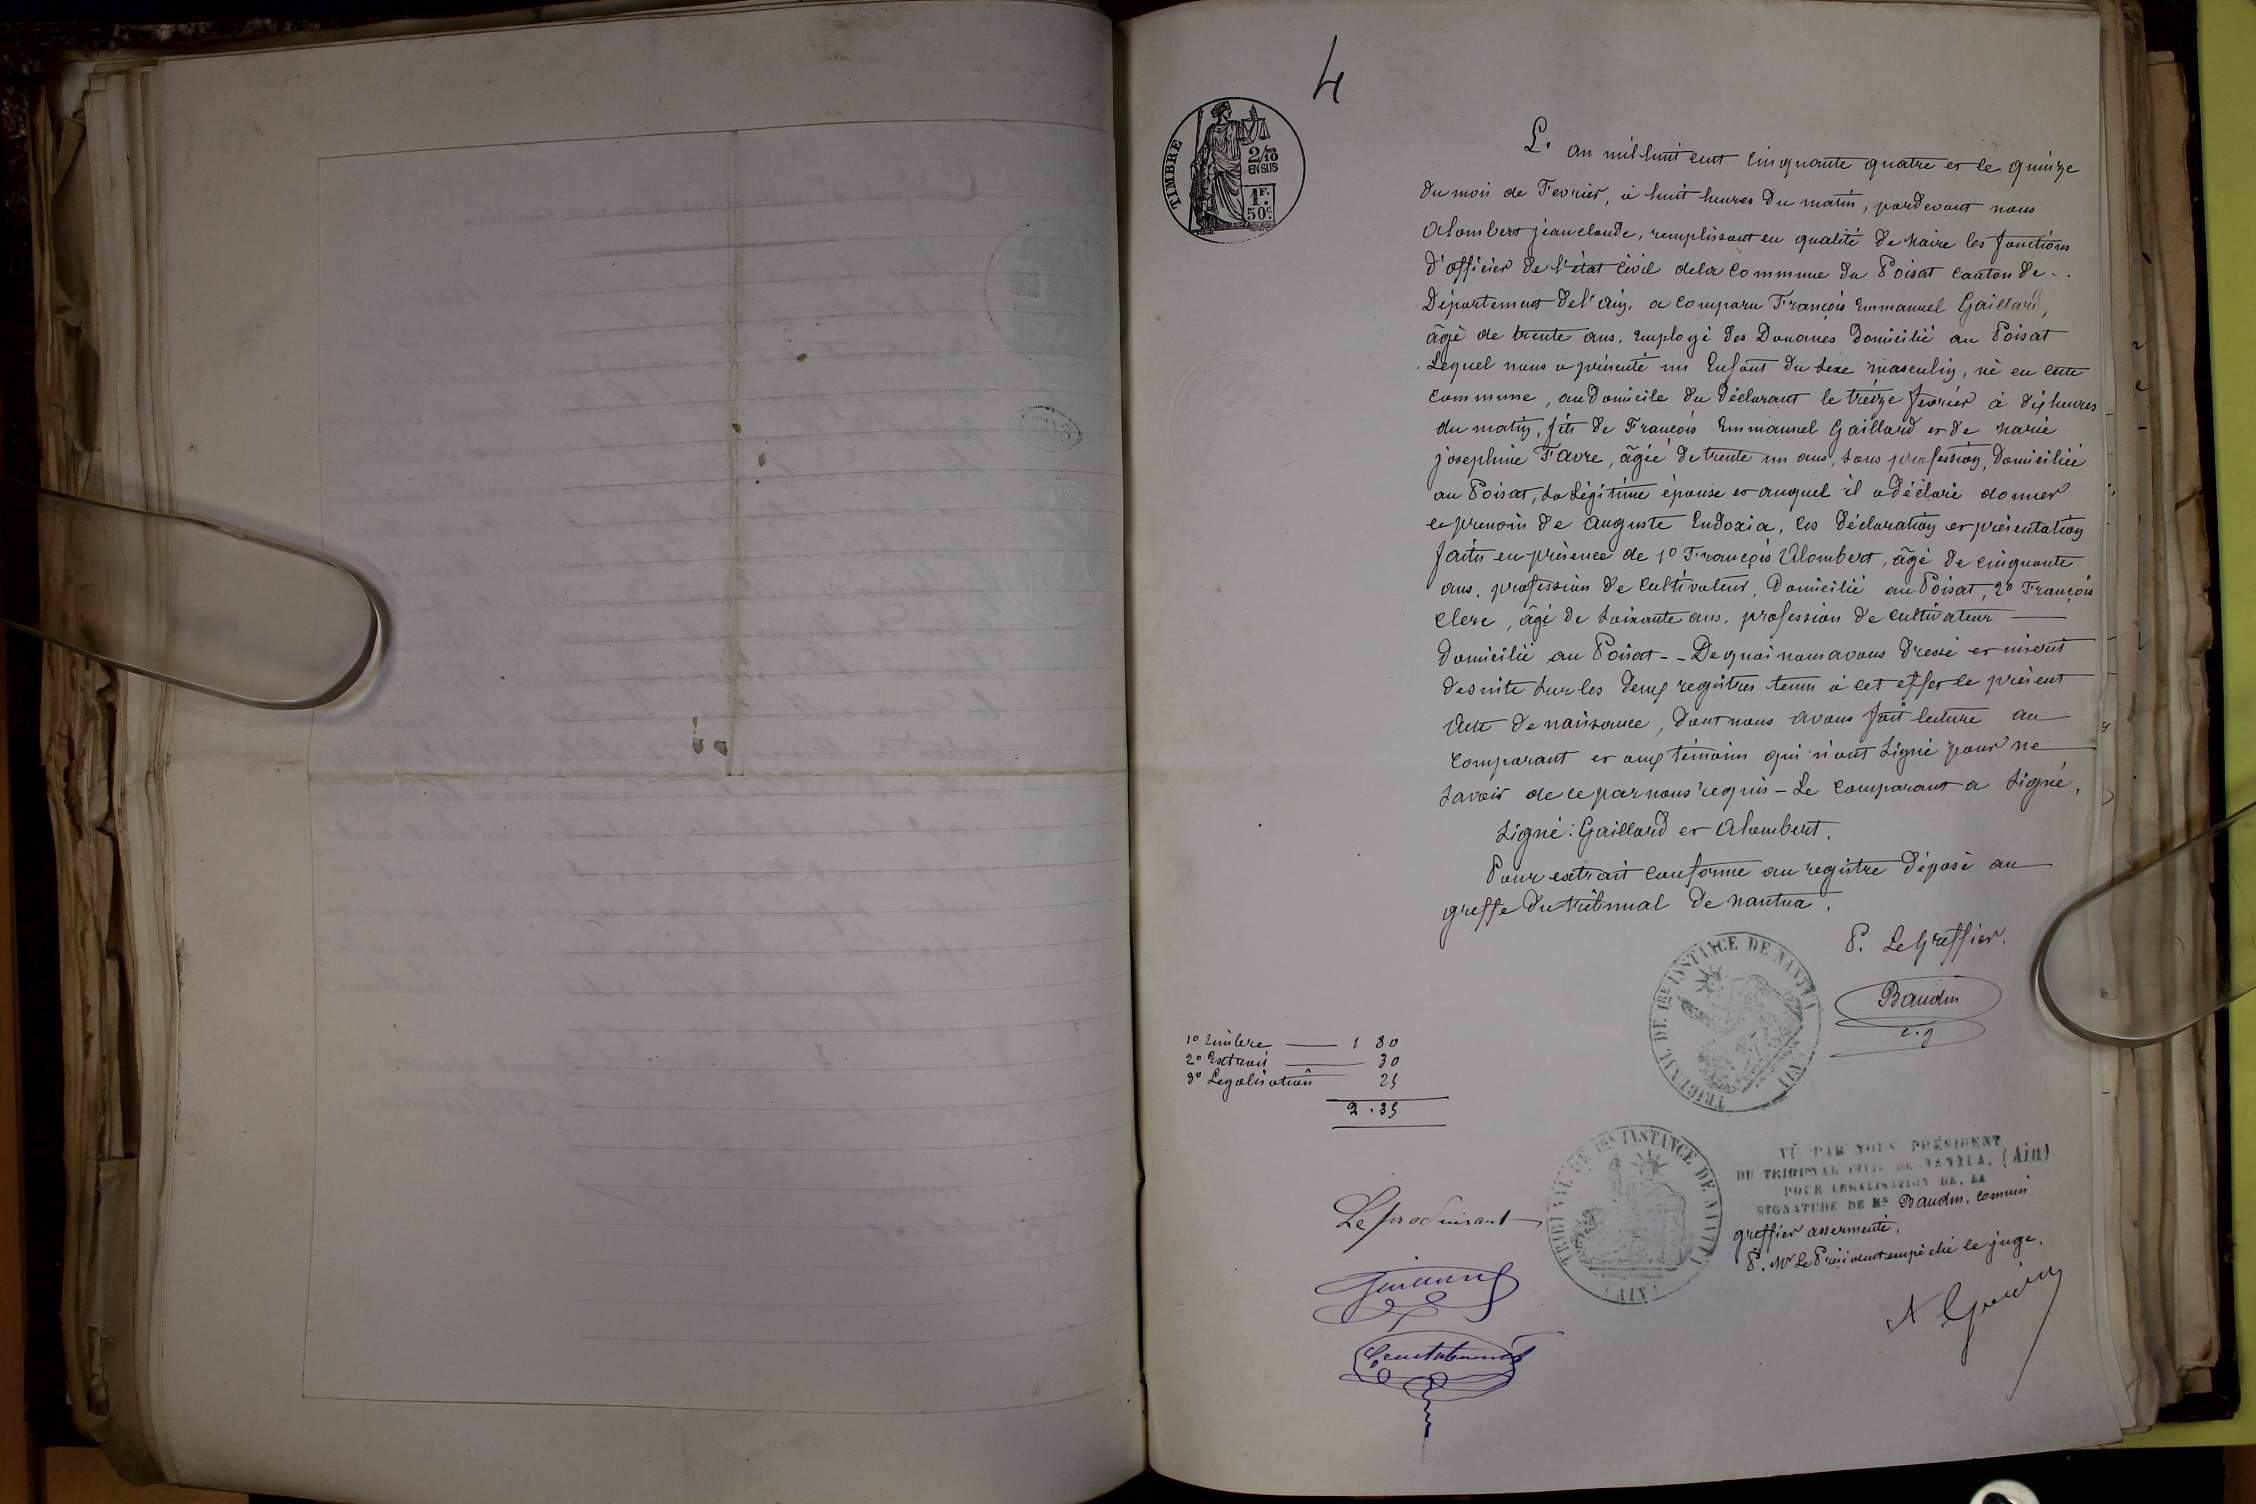 4
TIMBRE
2/10
EN SUS
1F.
50c.
L'an mil huit cent cinquante quatre et le quinze
du mois de Fevrier, à huit heures du matin, pardevant nous
Alombert jean claude, remplissant en qualité de Maire les fonctions
d'officier de l'état civil dela commune du Poisat canton de - .
Département del'ain. a comparu François Emmanuel Gaillard,
âgé de trente ans. Employé des Douanes domicilié au Poisat
Lequel nous a présenté un Enfant du sexe masculin, né en cette
commune, au domicile du déclarant le treize fevrier à dix heures
du matin, fils de François Emmanuel Gaillard et de Marie
josephine Favre, âgée de trente un ans, sans profession, domiciliée
au Poisat, sa légitime épouse et auquel il a déclaré donner
le prenom de Auguste Eudoxia, les déclaration et présentation
faites en présence de 1º François Alombert, âgé de cinquante
ans. profession de cultivateur, domicilié au Poisat, 2º François
Clerc, âgé de soixante ans. profession de cultivateur
domicilié au Poisat - - De quoi nous avons dressé et inscrit
desuite sur les deux registres tenus à cet effet le présent
Acte de naissance, dont nous avons fait lecture au
comparant et aux témoins qui n'ont signé pour ne
savoir de ce par nous requis - Le comparant a signé.
Signé : Gaillard et Alombert.
Pour extrait conforme au registre déposé au
greffe du tribunal de Nantua.
P. Le Greffier.
Baudin
c. g
TRIBUNAL DE 1RE INSTANCE DE NANTUA (AIN)
1º Timbre 1 80
2º Extrait 30
3º Legalisation 25
2.35
TRIBUNAL DE 1RE INSTANCE DE NANTUA (AIN)
VU PAR NOUS PRÉSIDENT
DU TRIBUNAL CIVIL DE NANTUA. (Ain)
POUR LÉGALISATION DE LA
SIGNATURE DE Mr Baudin, commis
greffier assermenté.
P. Mr Le Président empêché le juge.
Le produisant